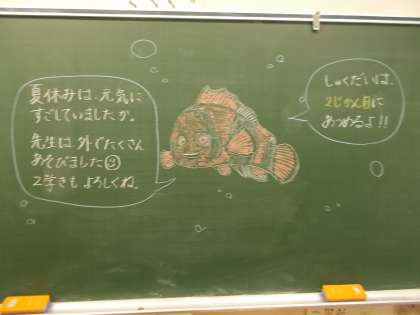 夏休みは、元気に
すごしていましたか。
先生は外でたくさん
あそびました
2学きもよろしくね。
しゅくだいは、
2じかん目に
あつめるよ!!